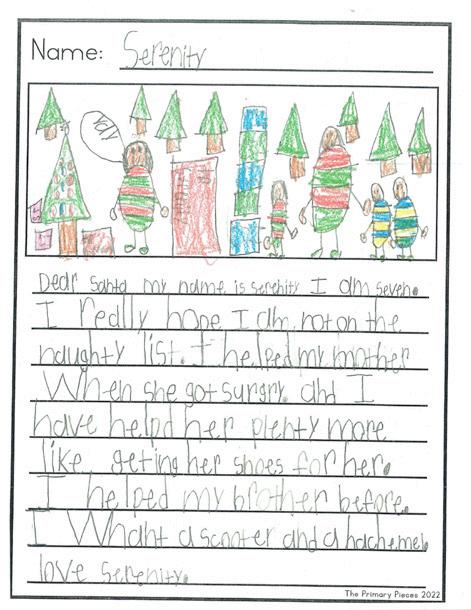 Name: Serenity
Yay
Dear Santa my name is serenity I am seven.
I really hope I am not on the
naughty list. I helped my mother
When she got surgry. and I
have helpd her plenty more
like geting her shoes for her.
I helped my brother before.
I Whant a scooter and a hachemel.
love serenity.
The Primary Pieces 2022